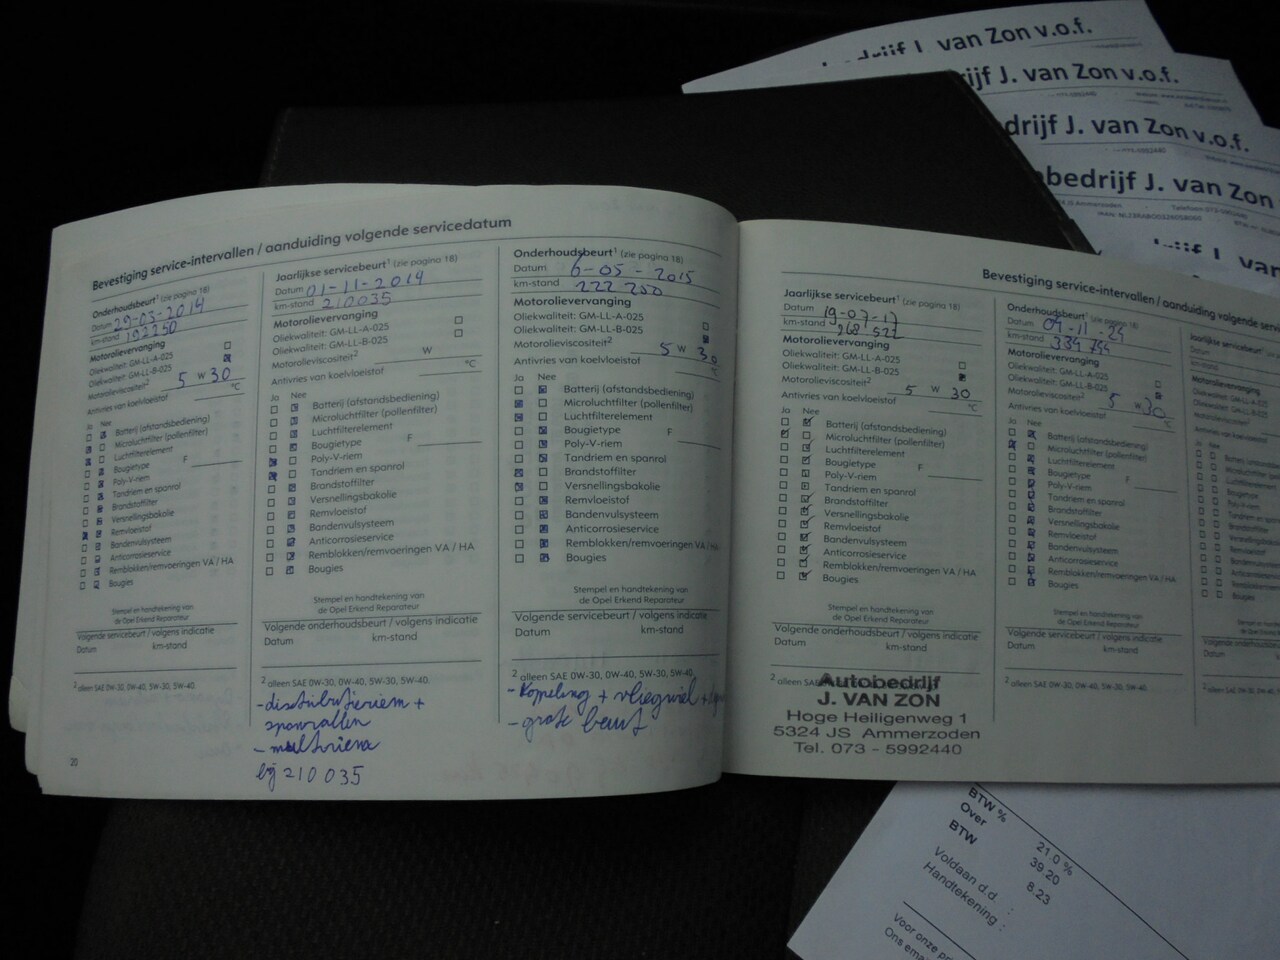 van Zon v.o.f.
ijf J. van Zon v.o.f.
drijf J. van Zon v.o.f.
bedrijf J. van Zon
Bevestiging service-intervallen / aanduiding volgende servicedatum
Onderhoudsbeurt¹ (zie pagina 18)
Datum 29-03-2014
km-stand 192250
Motorolievervanging
Oliekwaliteit: GM-LL-A-025
Oliekwaliteit: GM-LL-B-025
Motorolieviscositeit² 5 W 30
Antivries van koelvloeistof °C
Ja Nee
Batterij (afstandsbediening)
Microluchtfilter (pollenfilter)
Luchtfilterelement
Bougietype F
Poly-V-riem
Tandriem en spanrol
Brandstoffilter
Versnellingsbakolie
Remvloeistof
Bandenvulsysteem
Anticorrosieservice
Remblokken/remvoeringen VA / HA
Bougies
Stempel en handtekening van
de Opel Erkend Reparateur
Volgende servicebeurt / volgens indicatie
Datum km-stand
² alleen SAE 0W-30, 0W-40, 5W-30, 5W-40.
20
Jaarlijkse servicebeurt¹ (zie pagina 18)
Datum 01-11-2014
km-stand 210035
Motorolievervanging
Oliekwaliteit: GM-LL-A-025
Oliekwaliteit: GM-LL-B-025
Motorolieviscositeit² W
Antivries van koelvloeistof °C
Ja Nee
Batterij (afstandsbediening)
Microluchtfilter (pollenfilter)
Luchtfilterelement
Bougietype F
Poly-V-riem
Tandriem en spanrol
Brandstoffilter
Versnellingsbakolie
Remvloeistof
Bandenvulsysteem
Anticorrosieservice
Remblokken/remvoeringen VA / HA
Bougies
Stempel en handtekening van
de Opel Erkend Reparateur
Volgende onderhoudsbeurt / volgens indicatie
Datum km-stand
² alleen SAE 0W-30, 0W-40, 5W-30, 5W-40.
- distributieriem +
spanrollen
- multiriem
bij 210035
Onderhoudsbeurt¹ (zie pagina 18)
Datum 6-05-2015
km-stand 222 250
Motorolievervanging
Oliekwaliteit: GM-LL-A-025
Oliekwaliteit: GM-LL-B-025
Motorolieviscositeit² 5 W 30
Antivries van koelvloeistof °C
Ja Nee
Batterij (afstandsbediening)
Microluchtfilter (pollenfilter)
Luchtfilterelement
Bougietype F
Poly-V-riem
Tandriem en spanrol
Brandstoffilter
Versnellingsbakolie
Remvloeistof
Bandenvulsysteem
Anticorrosieservice
Remblokken/remvoeringen VA / HA
Bougies
Stempel en handtekening van
de Opel Erkend Reparateur
Volgende servicebeurt / volgens indicatie
Datum km-stand
² alleen SAE 0W-30, 0W-40, 5W-30, 5W-40.
- Koppeling + vliegwiel +
- grote beurt
Bevestiging service-intervallen / aanduiding volgende serv
Jaarlijkse servicebeurt¹ (zie pagina 18)
Datum 19-07-17
km-stand 268 522
Motorolievervanging
Oliekwaliteit: GM-LL-A-025
Oliekwaliteit: GM-LL-B-025
Motorolieviscositeit² 5 W 30
Antivries van koelvloeistof °C
Ja Nee
Batterij (afstandsbediening)
Microluchtfilter (pollenfilter)
Luchtfilterelement
Bougietype F
Poly-V-riem
Tandriem en spanrol
Brandstoffilter
Versnellingsbakolie
Remvloeistof
Bandenvulsysteem
Anticorrosieservice
Remblokken/remvoeringen VA / HA
Bougies
Stempel en handtekening van
de Opel Erkend Reparateur
Volgende onderhoudsbeurt / volgens indicatie
Datum km-stand
² alleen SAE 0W-30, 0W-40, 5W-30, 5W-40.
Autobedrijf
J. VAN ZON
Hoge Heiligenweg 1
5324 JS Ammerzoden
Tel. 073 - 5992440
Onderhoudsbeurt¹ (zie pagina 18)
Datum 04-11-24
km-stand
Motorolievervanging
Oliekwaliteit: GM-LL-A-025
Oliekwaliteit: GM-LL-B-025
Motorolieviscositeit² 5 W 30
Antivries van koelvloeistof °C
Ja Nee
Batterij (afstandsbediening)
Microluchtfilter (pollenfilter)
Luchtfilterelement
Bougietype F
Poly-V-riem
Tandriem en spanrol
Brandstoffilter
Versnellingsbakolie
Remvloeistof
Bandenvulsysteem
Anticorrosieservice
Remblokken/remvoeringen VA / HA
Bougies
Stempel en handtekening van
de Opel Erkend Reparateur
Volgende servicebeurt / volgens indicatie
Datum km-stand
² alleen SAE 0W-30, 0W-40, 5W-30, 5W-40.
Datum
km-stand
Ja Nee
BTW % 21.0 %
Over 39.20
BTW 8.23
Voldaan d.d. :
Handtekening :
Voor onze
Ons